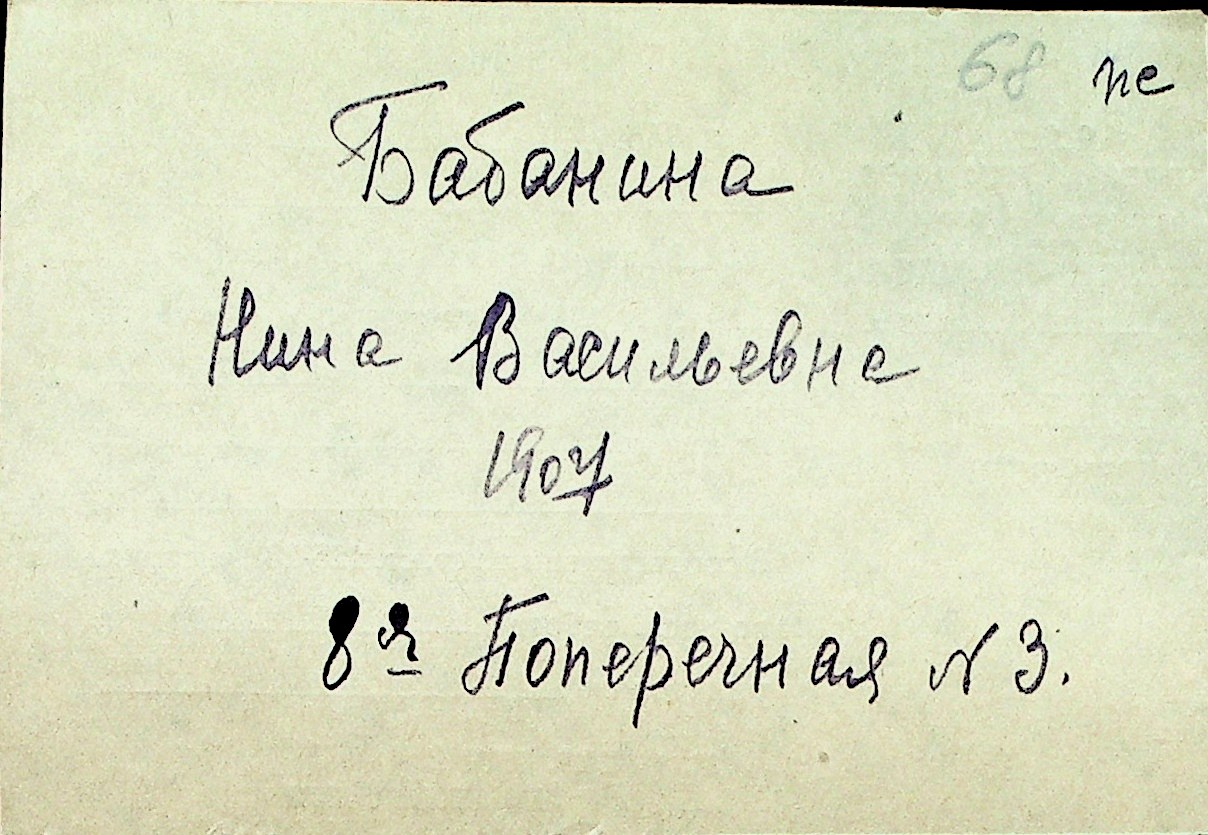 68 пс
Бабанина
Нина Васильевна
1907
8я Поперечная N 3.